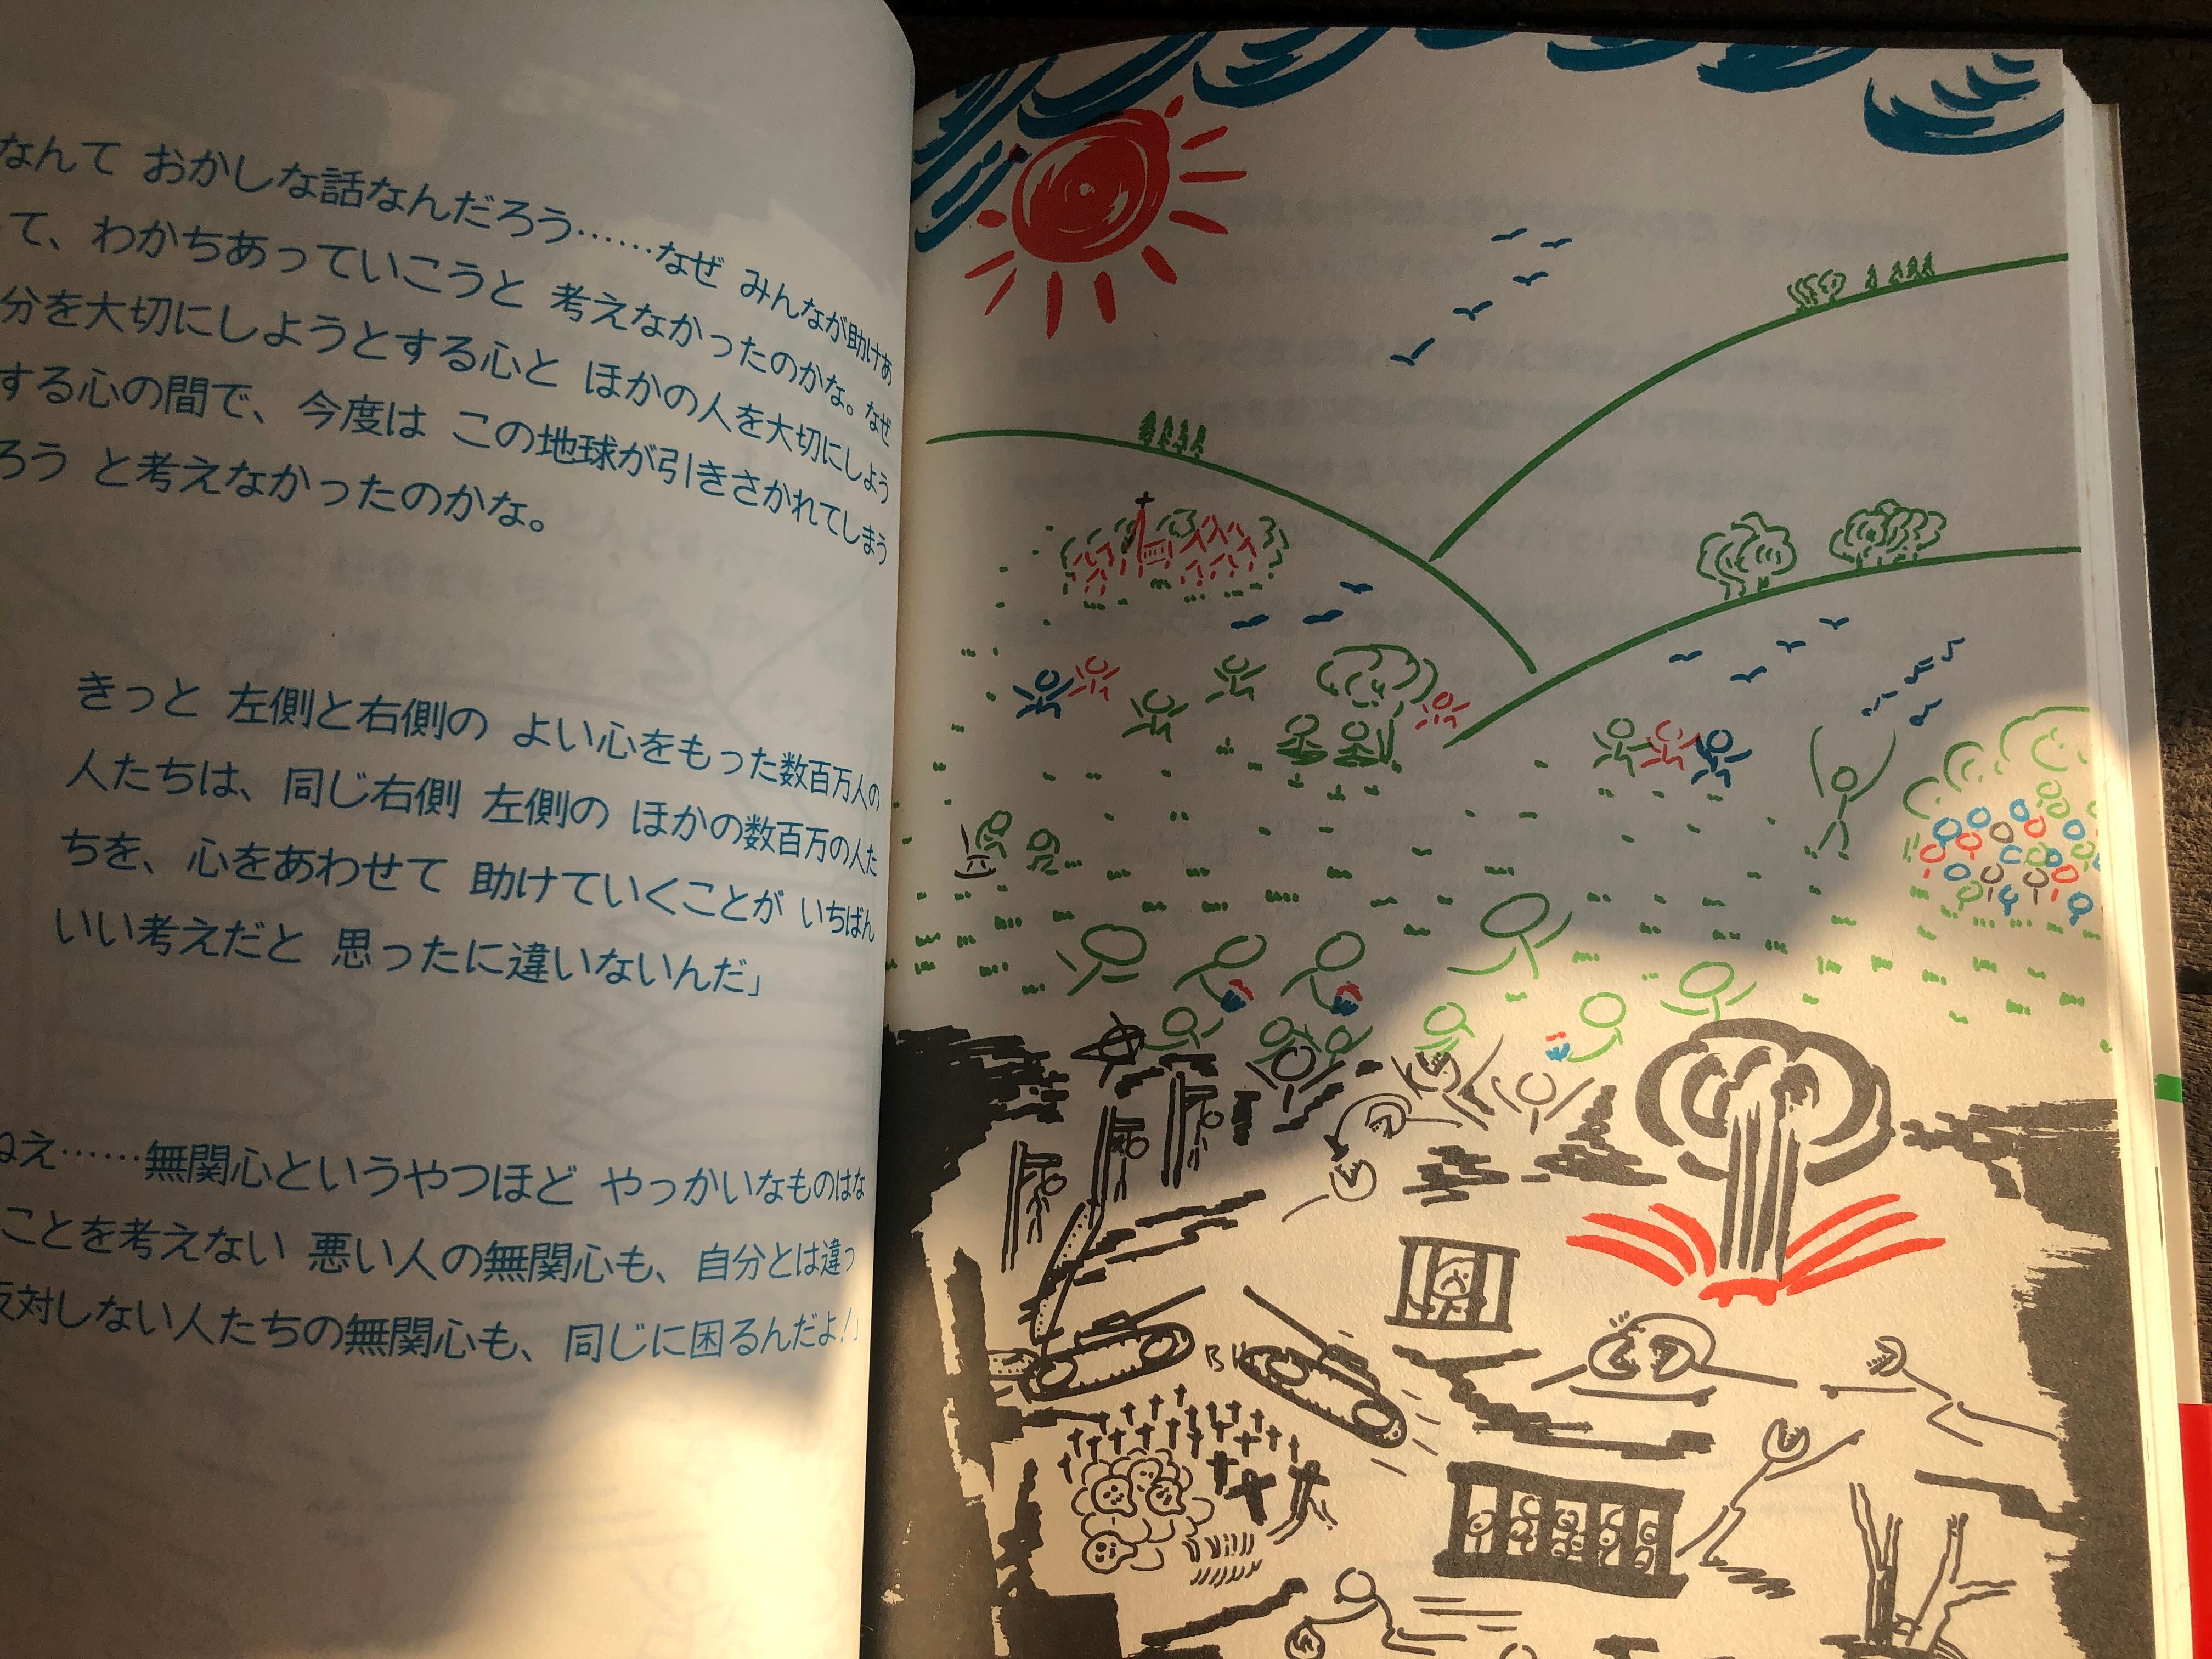 なんて おかしな話なんだろう……なぜ みんなが助けあ
て、わかちあっていこうと 考えなかったのかな。なぜ
分を大切にしようとする心と ほかの人を大切にしよう
する心の間で、今度は この地球が引きさかれてしまう
ろう と考えなかったのかな。
きっと 左側と右側の よい心をもった数百万人の
人たちは、同じ右側 左側の ほかの数百万の人た
ちを、心をあわせて 助けていくことが いちばん
いい考えだと 思ったに違いないんだ」
ねえ……無関心というやつほど やっかいなものはな
ことを考えない 悪い人の無関心も、自分とは違っ
反対しない人たちの無関心も、同じに困るんだよ!」